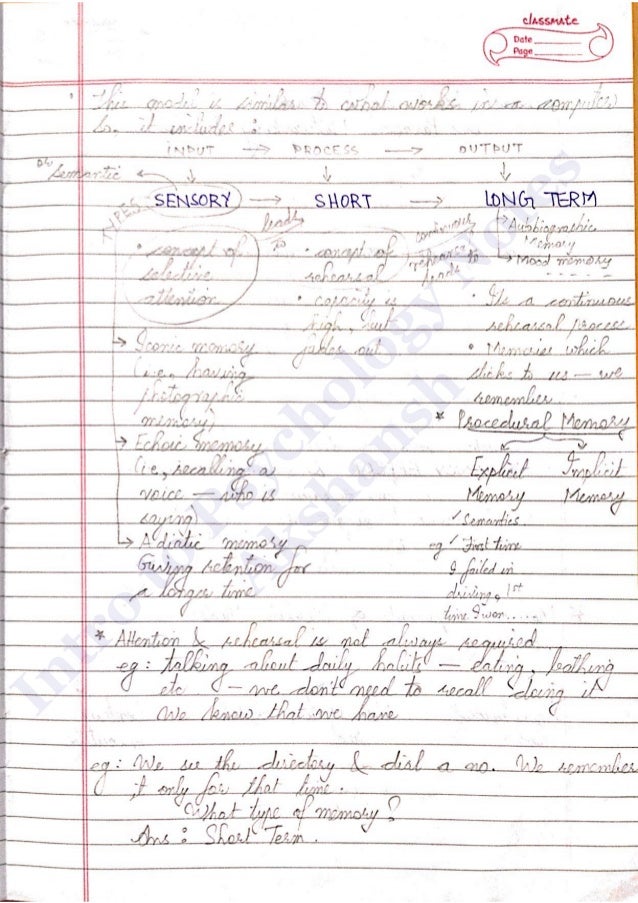 classmate
Date
Page
• This model is similar to what works in a computer
So, it includes :
INPUT → PROCESS → OUTPUT
or Semantic
SENSORY → SHORT → LONG TERM
TYPES
leads to
continuous rehearsal leads to
→ Autobiographic Memory
→ Mood memory
• concept of
selective
attention
→ Iconic memory
(i.e., having
photographic
memory)
→ Echoic memory
(i.e., recalling a
voice — who is
saying)
→ Adiatic memory
Giving retention for
a longer time
• concept of
rehearsal
• capacity is
high, but
fades out
• Its a continuous
rehearsal process
• Memories which
clicks to us — we
remember
* Procedural Memory
Explicit Implicit
Memory Memory
✓ Semantics
eg ✓ First time
I failed in
driving, 1st
time I won.....
* Attention & rehearsal is not always required
eg : talking about daily habits — eating, bathing
etc — we don't need to recall doing it
We know that we have
eg : We see the directory & dial a no. We remember
it only for that time.
What type of memory?
Ans : Short Term.
Intro to Psychology Notes
Akshansh